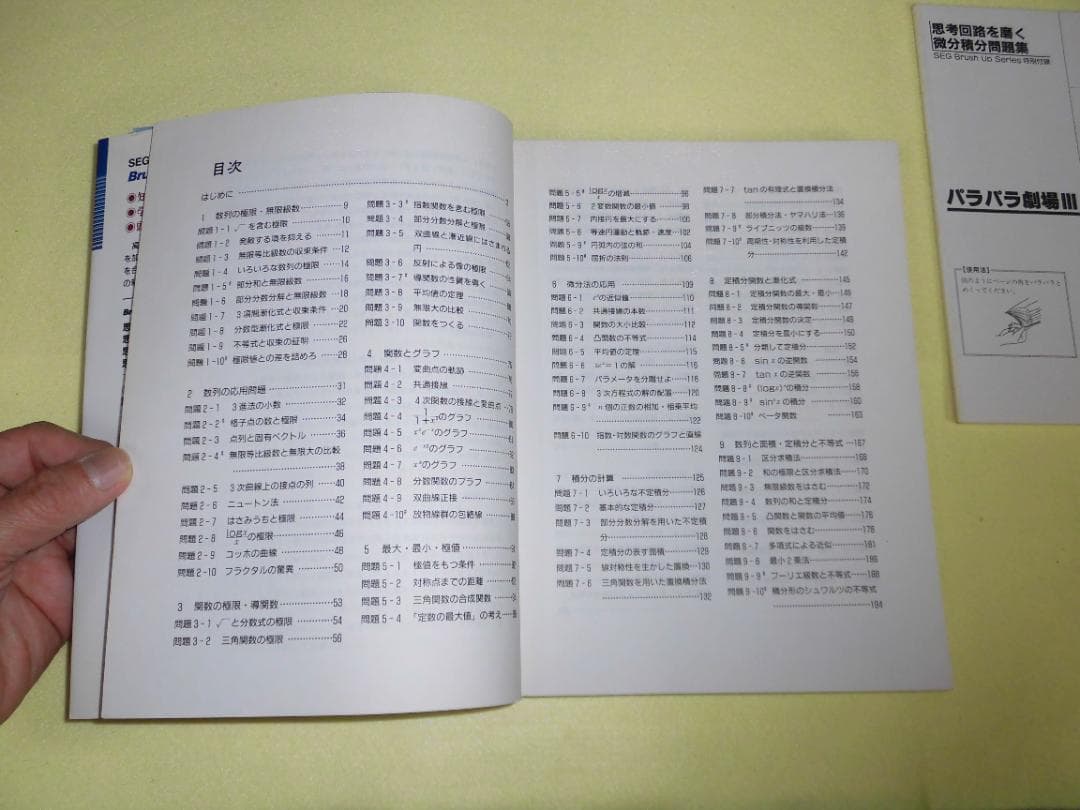 目次
はじめに
1 数列の極限・無限級数 9
問題1-1 √を含む極限 10
問題1-2 発散する項を抑える 11
問題1-3 無限等比級数の収束条件 12
問題1-4 いろいろな数列の極限 14
問題1-5 部分和と無限級数 16
問題1-6 部分分数分解と無限級数 18
問題1-7 3項間漸化式と収束条件 20
問題1-8 分数型漸化式と極限 22
問題1-9 不等式と収束の証明 26
問題1-10 極限値との差を詰めろ 28
2 数列の応用問題 31
問題2-1 3進法の小数 32
問題2-2 格子点の数と極限 34
問題2-3 点列と固有ベクトル 36
問題2-4 無限等比級数と無限大の比較 38
問題2-5 3次曲線上の接点の列 40
問題2-6 ニュートン法 42
問題2-7 はさみうちと極限 44
問題2-8 logx/xの極限 46
問題2-9 コッホの曲線 48
問題2-10 フラクタルの驚異 50
3 関数の極限・導関数 53
問題3-1 √と分数式の極限 54
問題3-2 三角関数の極限 56
問題3-3 指数関数を含む極限
問題3-4 部分分数分解と極限
問題3-5 双曲線と漸近線にはさまれる円
問題3-6 反射による像の極限
問題3-7 導関数の性質を導く
問題3-8 平均値の定理
問題3-9 無限大の比較
問題3-10 関数をつくる
4 関数とグラフ
問題4-1 変曲点の軌跡
問題4-2 共通接線
問題4-3 4次関数の接線と変曲点
問題4-4 のグラフ
問題4-5 のグラフ
問題4-6 のグラフ
問題4-7 のグラフ
問題4-8 分数関数のグラフ
問題4-9 双曲線正接
問題4-10 放物線群の包絡線
5 最大・最小・極値
問題5-1 極値をもつ条件
問題5-2 対称点までの距離
問題5-3 三角関数の合成関数
問題5-4 「定数の最大値」の考え
問題5-5 の増減 96
問題5-6 2変数関数の最小値 98
問題5-7 内接円を最大にする 100
問題5-8 等速円運動と軌跡・速度 102
問題5-9 円剪内の弦の和 104
問題5-10 屈折の法則 106
6 微分法の応用 109
問題6-1 の近似値 110
問題6-2 共通接線の本数 111
問題6-3 関数の大小比較 112
問題6-4 凸関数の不等式 114
問題6-5 平均値の定理 115
問題6-6 =1の解 116
問題6-7 パラメータを分離せよ 118
問題6-8 3次方程式の解の配置 120
問題6-9 n個の正数の相加・相乗平均 122
問題6-10 指数・対数関数のグラフと直線 124
7 積分の計算 125
問題7-1 いろいろな不定積分 126
問題7-2 基本的な定積分 127
問題7-3 部分分数分解を用いた不定積分 128
問題7-4 定積分の表す面積 129
問題7-5 線対称性を生かした置換 130
問題7-6 三角関数を用いた置換積分法 132
問題7-7 tanの有理式と置換積分法 134
問題7-8 部分積分法・ヤマハリ法 136
問題7-9 ライプニッツの級数 139
問題7-10 周期性・対称性を利用した定積分 142
8 定積分関数と漸化式 145
問題8-1 定積分関数の最大・最小 146
問題8-2 定積分関数の導関数 147
問題8-3 定積分関数の決定 148
問題8-4 定積分を最小にする 150
問題8-5 分割して定積分 152
問題8-6 sin xの逆関数 154
問題8-7 tan xの逆関数 156
問題8-8 (logx)ⁿの積分 158
問題8-9 sinⁿxの積分 160
問題8-10 ベータ関数 163
9 数列と面積・定積分と不等式 167
問題9-1 区分求積法 168
問題9-2 和の極限と区分求積法 170
問題9-3 無限級数をはさむ 172
問題9-4 数列の和と定積分 174
問題9-5 凸関数と関数の平均値 176
問題9-6 関数をはさむ 178
問題9-7 多項式による近似 181
問題9-8 最小2乗法 186
問題9-9 フーリエ級数と不等式 188
問題9-10 積分形のシュワルツの不等式 194
思考回路を磨く
微分積分問題集
SEG Brush Up Series 特別付録
パラパラ劇場III
【使用法】
SEG